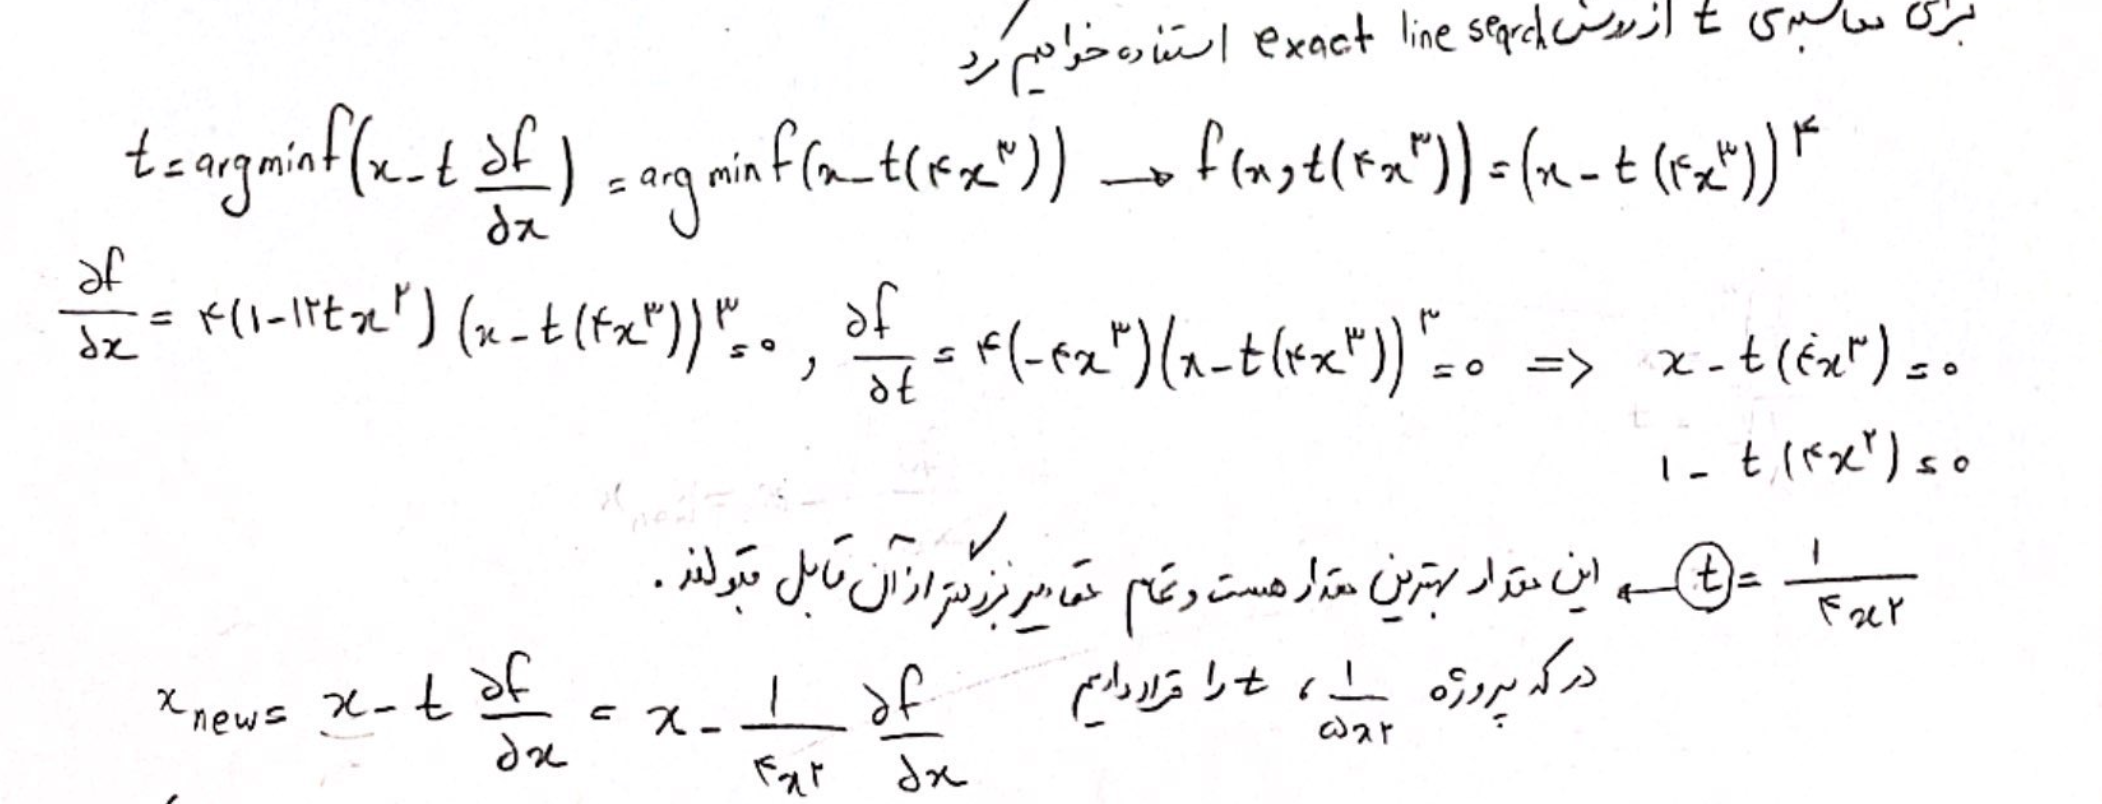 برای محاسبه‌ی t از روش exact line search استفاده خواهیم کرد
t = argmin f(x - t ∂f/∂x) = arg min f(x - t(۴x^۳)) → f(x, t(۴x^۳)) = (x - t(۴x^۳))^۴
∂f/∂x = ۴(۱-۱۲tx^۲)(x - t(۴x^۳))^۳ = ۰ , ∂f/∂t = ۴(-۴x^۳)(x - t(۴x^۳))^۳ = ۰ => x - t(۴x^۳) = ۰
۱ - t(۴x^۲) = ۰
t = ۱/۴x^۲ ← این مقدار بهترین مقدار هست و تمام مقادیر بزرگتر از آن قابل قبولند.
در کد پروژه ۱/۵x^۲ ، t را قرار دادیم
x new = x - t ∂f/∂x = x - ۱/۴x^۲ ∂f/∂x